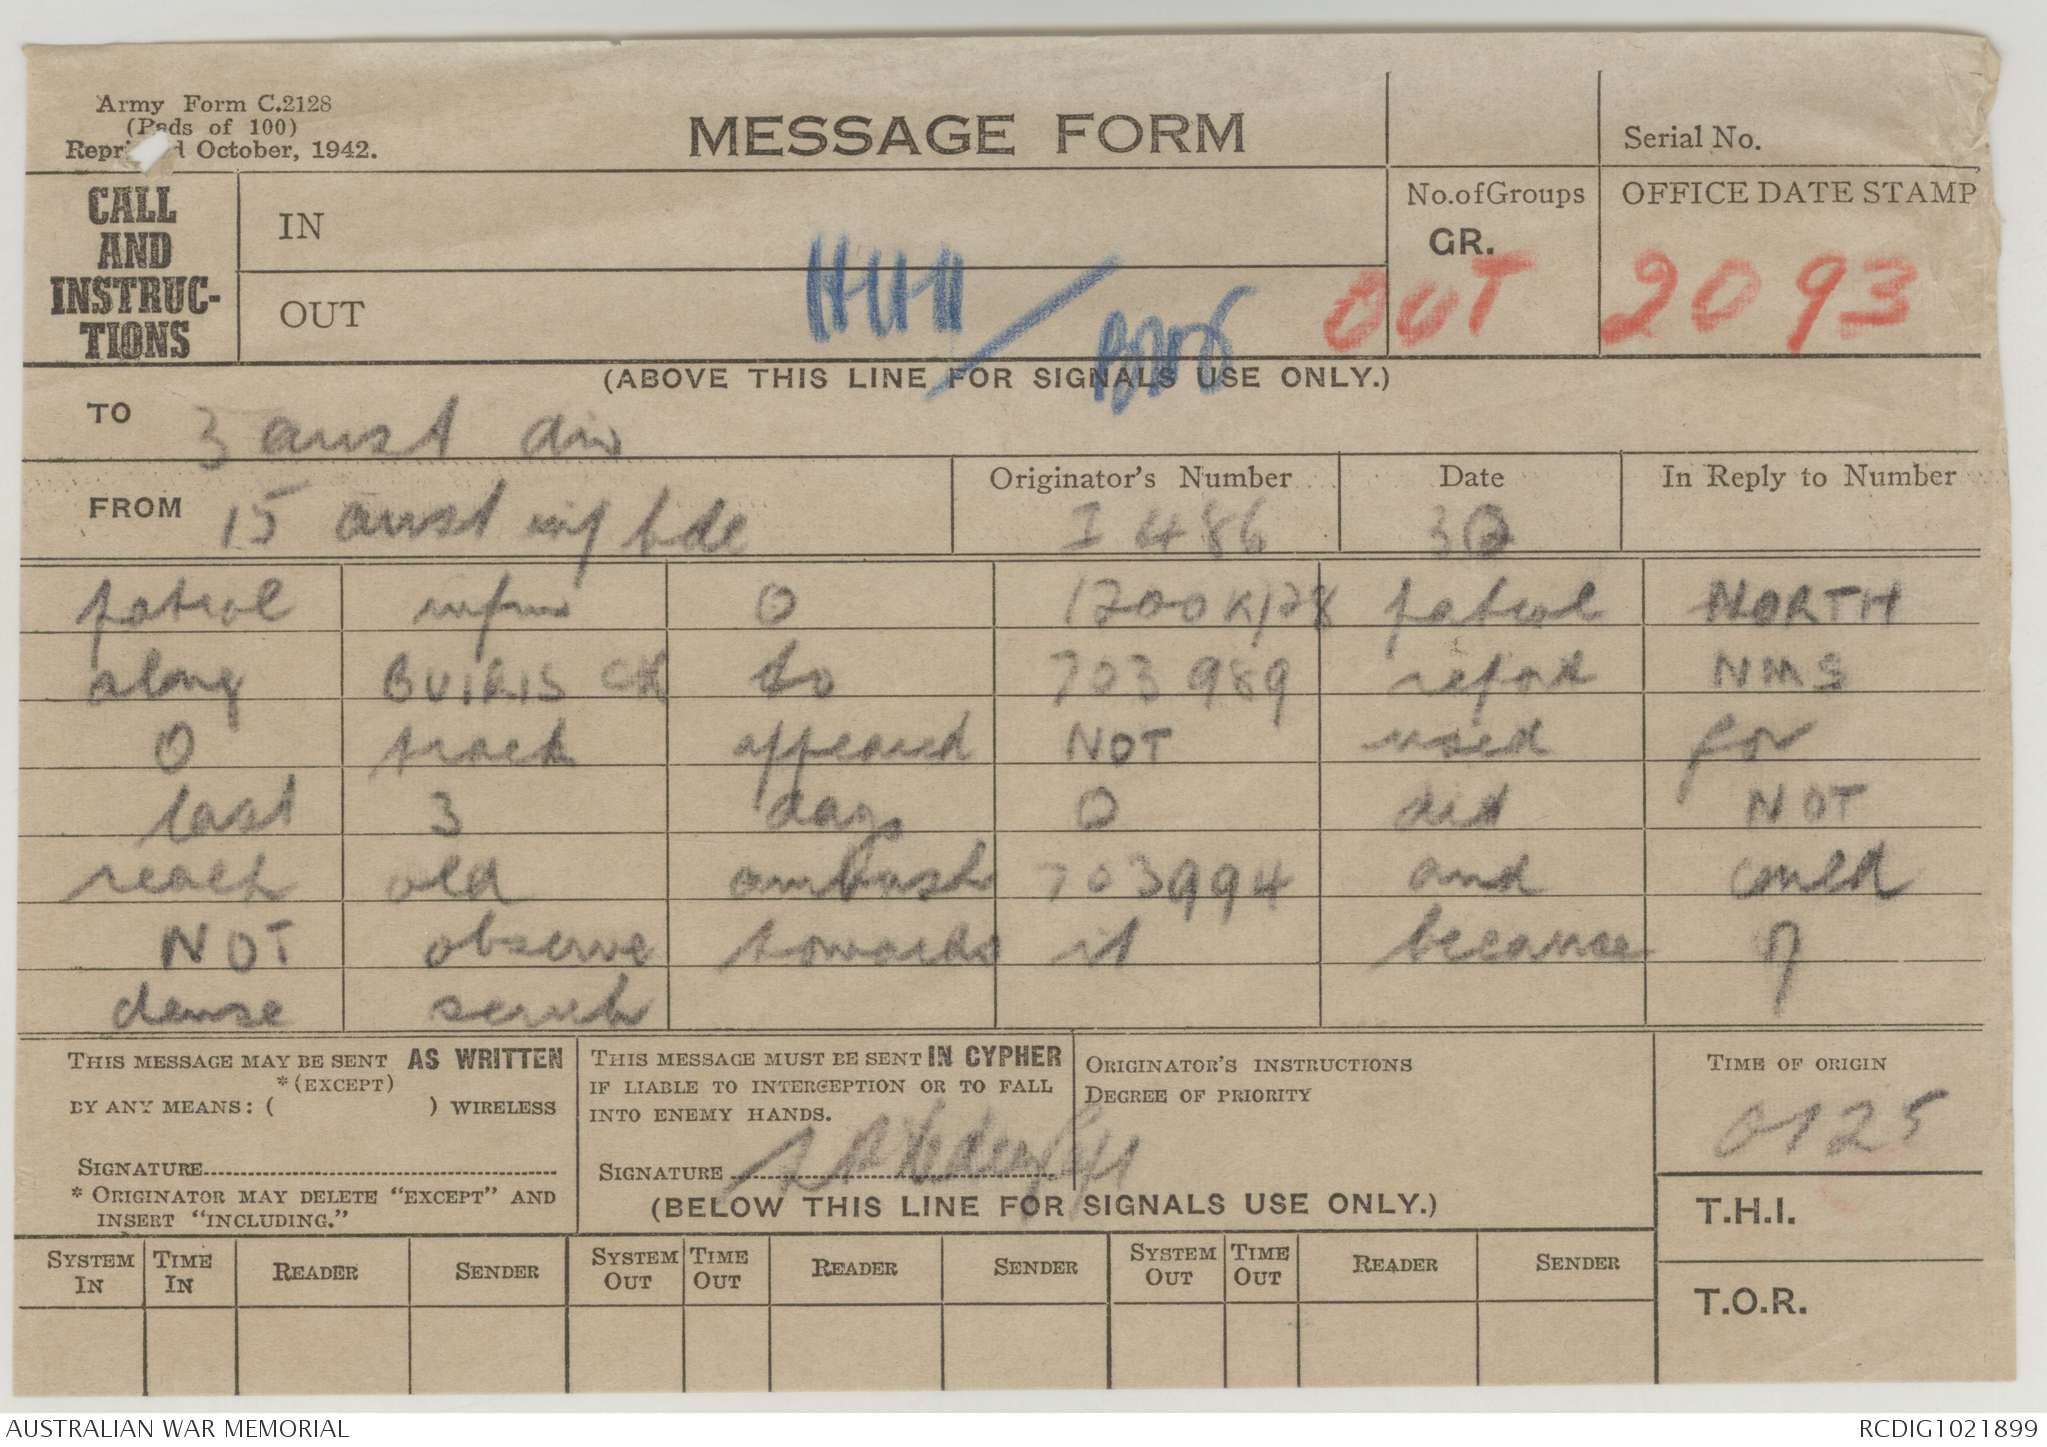 Army Form C.2128
(Pads of 100)
October, 1942.
MESSAGE FORM
Serial No.
CALL AND INSTRUC-TIONS
IN
OUT
No. of Groups
GR.
OFFICE DATE STAMP
OUT 2093
(ABOVE THIS LINE FOR SIGNALS USE ONLY.)
TO 3 aust div
FROM 15 aust inf bde
Originator's Number I 486
Date 30
In Reply to Number
patrol infm O 1200K/28 patrol NORTH
along BUIRIS CK to 703989 report NMS
O track appeared NOT used for
last 3 days O did NOT
reach old ambush 703994 and could
NOT observe towards it because of
dense scrub
THIS MESSAGE MAY BE SENT AS WRITTEN
*(EXCEPT)
BY ANY MEANS: ( ) WIRELESS
SIGNATURE
* ORIGINATOR MAY DELETE "EXCEPT" AND
INSERT "INCLUDING."
THIS MESSAGE MUST BE SENT IN CYPHER
IF LIABLE TO INTERCEPTION OR TO FALL
INTO ENEMY HANDS.
SIGNATURE
ORIGINATOR'S INSTRUCTIONS
DEGREE OF PRIORITY
TIME OF ORIGIN
0125
(BELOW THIS LINE FOR SIGNALS USE ONLY.)
T.H.I.
T.O.R.
SYSTEM IN TIME IN READER SENDER SYSTEM OUT TIME OUT READER SENDER SYSTEM OUT TIME OUT READER SENDER
AUSTRALIAN WAR MEMORIAL
RCDIG1021899